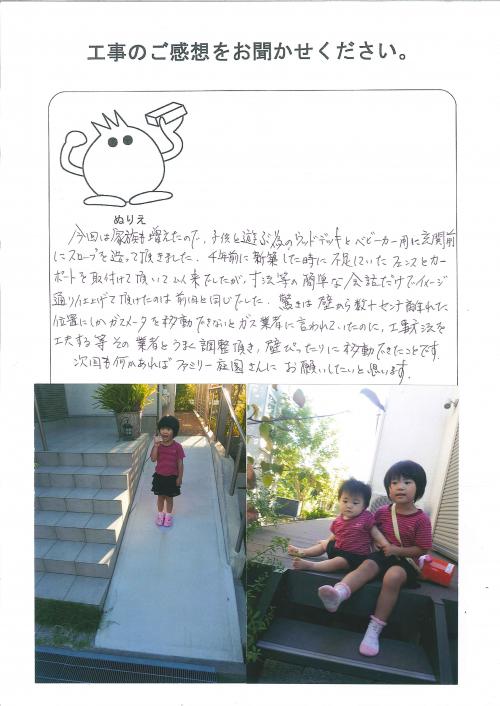 工事のご感想をお聞かせください。
ぬりえ
今回は家族も増えたので、子供と遊ぶ為のウッドデッキとベビーカー用に玄関前
にスロープを造って頂きました。4年前に新築した時に不足していたフェンスとカー
ポートを取付けて頂いて以来でしたが、寸法等の簡単な会話だけでイメージ
通り仕上げて頂けたのは前回と同じでした。驚きは壁から数十センチ離れた
位置にしかガスメータを移動できないとガス業者に言われていたのに、工事方法を
工夫する等その業者とうまく調整頂き、壁ぴったりに移動できたことです。
次回も何かあればファミリー庭園さんにお願いしたいと思います。